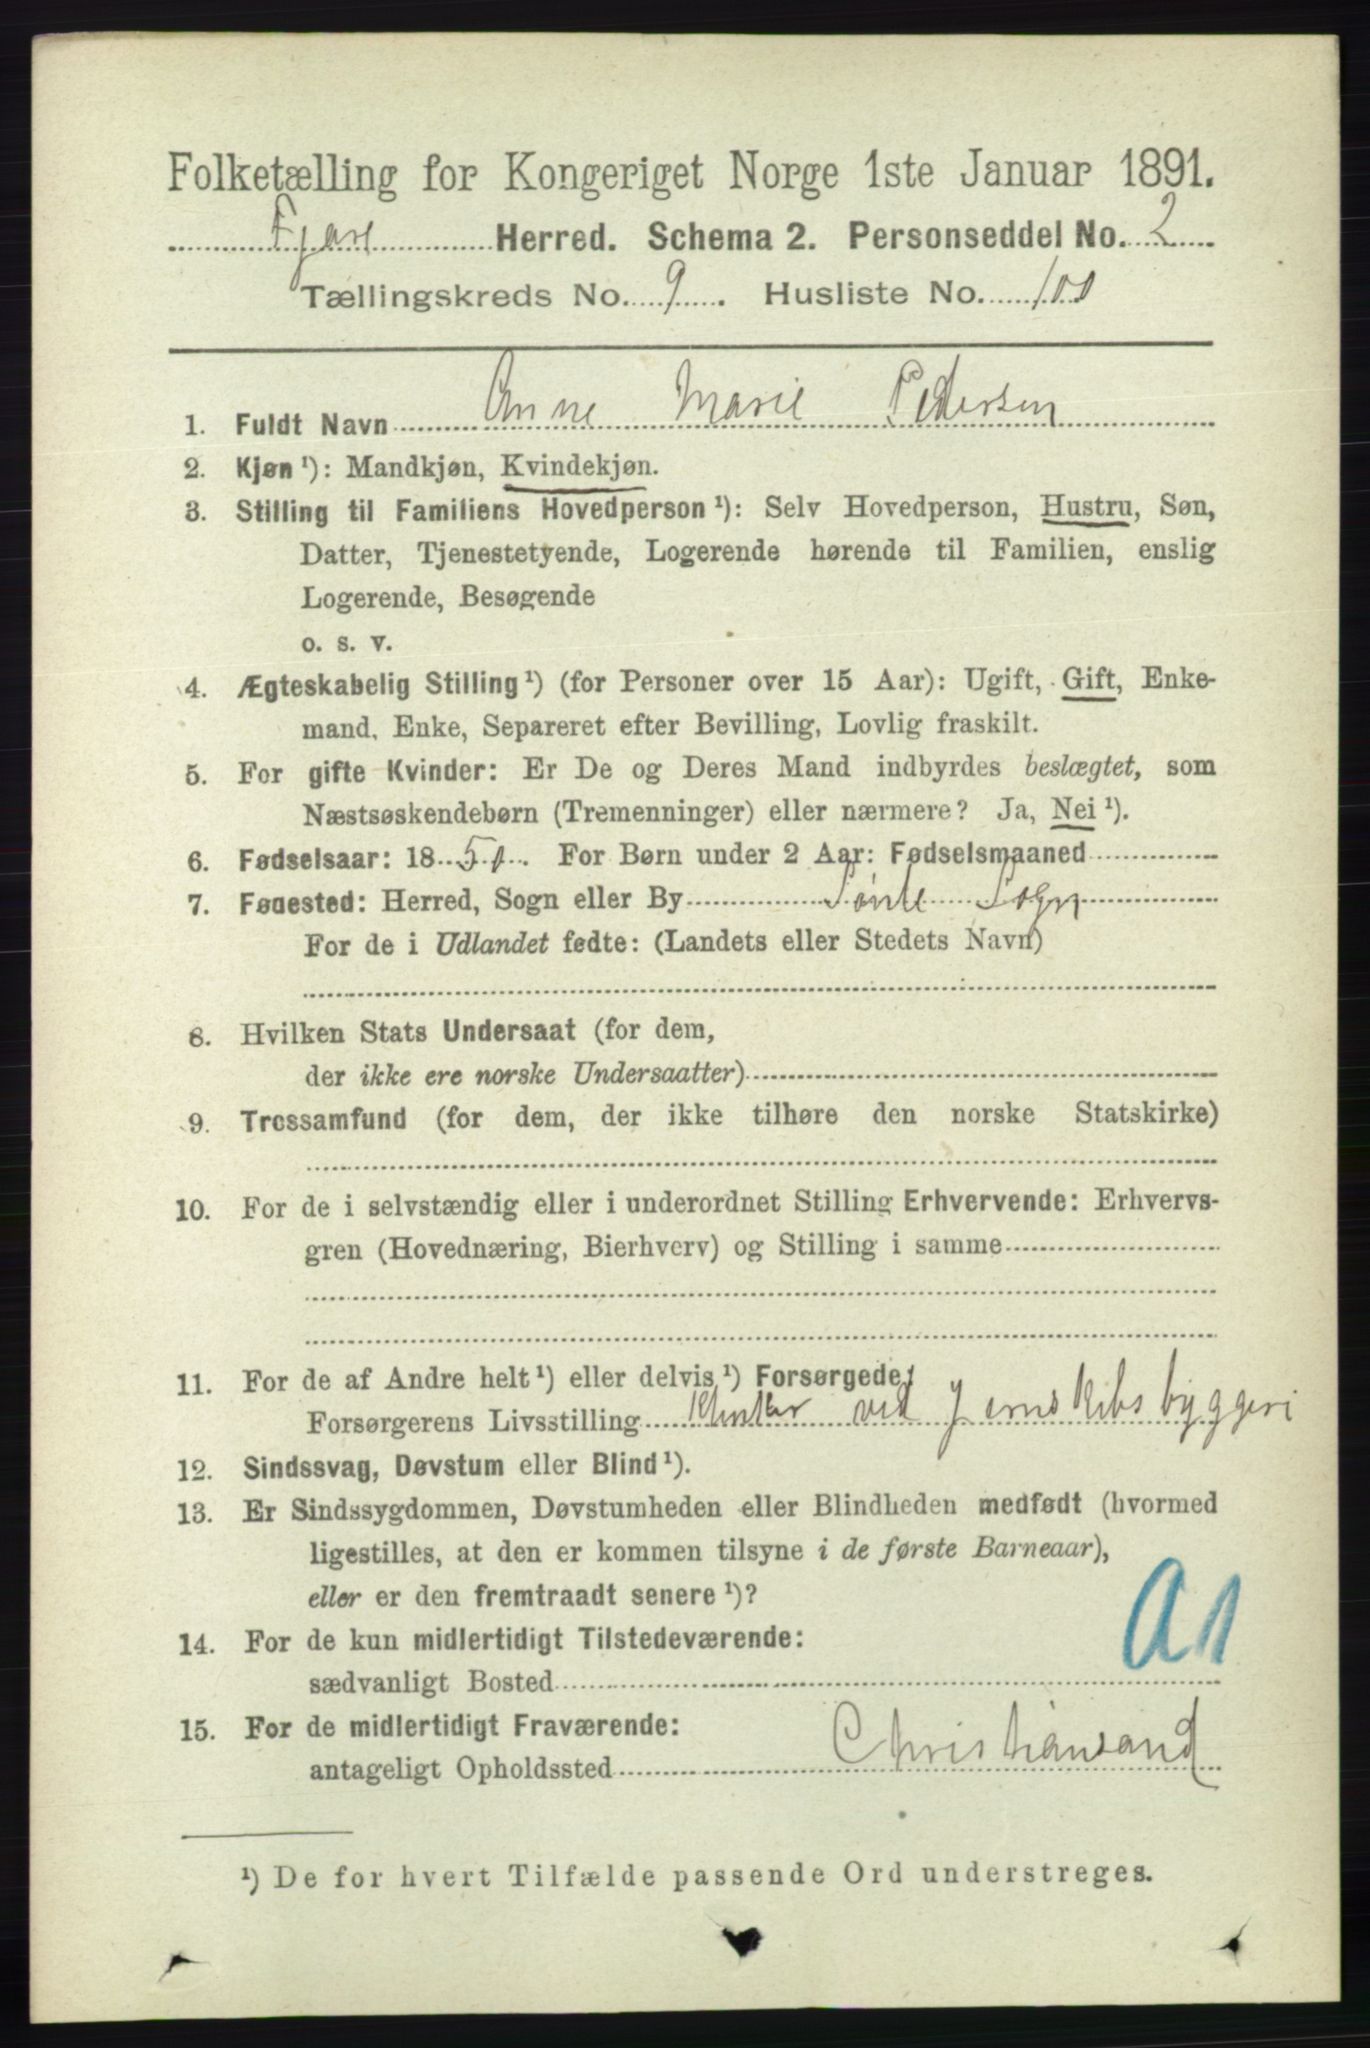 Folketælling for Kongeriget Norge 1ste Januar 1891.
Fjære Herred. Schema 2. Personseddel No. 2
Tællingskreds No. 9. Husliste No. 100
1. Fuldt Navn Anne Marie Pedersen
2. Kjøn ¹): Mandkjøn, Kvindekjøn.
3. Stilling til Familiens Hovedperson ¹): Selv Hovedperson, Hustru, Søn,
Datter, Tjenestetyende, Logerende hørende til Familien, enslig
Logerende, Besøgende
o. s. v.
4. Ægteskabelig Stilling ¹) (for Personer over 15 Aar): Ugift, Gift, Enke-
mand, Enke, Separeret efter Bevilling, Lovlig fraskilt.
5. For gifte Kvinder: Er De og Deres Mand indbyrdes beslægtet, som
Næstsøskendebørn (Tremenninger) eller nærmere? Ja, Nei ¹).
6. Fødselsaar: 1851. For Børn under 2 Aar: Fødselsmaaned
7. Fødested: Herred, Sogn eller By Sogn
For de i Udlandet fødte: (Landets eller Stedets Navn)
8. Hvilken Stats Undersaat (for dem,
der ikke ere norske Undersaatter)
9. Trossamfund (for dem, der ikke tilhøre den norske Statskirke)
10. For de i selvstændig eller i underordnet Stilling Erhvervende: Erhvervs-
gren (Hovednæring, Bierhverv) og Stilling i samme
11. For de af Andre helt ¹) eller delvis ¹) Forsørgede:
Forsørgerens Livsstilling Klinker ved Jernskibsbyggeri
12. Sindssvag, Døvstum eller Blind ¹).
13. Er Sindssygdommen, Døvstumheden eller Blindheden medfødt (hvormed
ligestilles, at den er kommen tilsyne i de første Barneaar),
eller er den fremtraadt senere ¹)?
A1
14. For de kun midlertidigt Tilstedeværende:
sædvanligt Bosted
15. For de midlertidigt Fraværende:
antageligt Opholdssted Christiansand
¹) De for hvert Tilfælde passende Ord understreges.